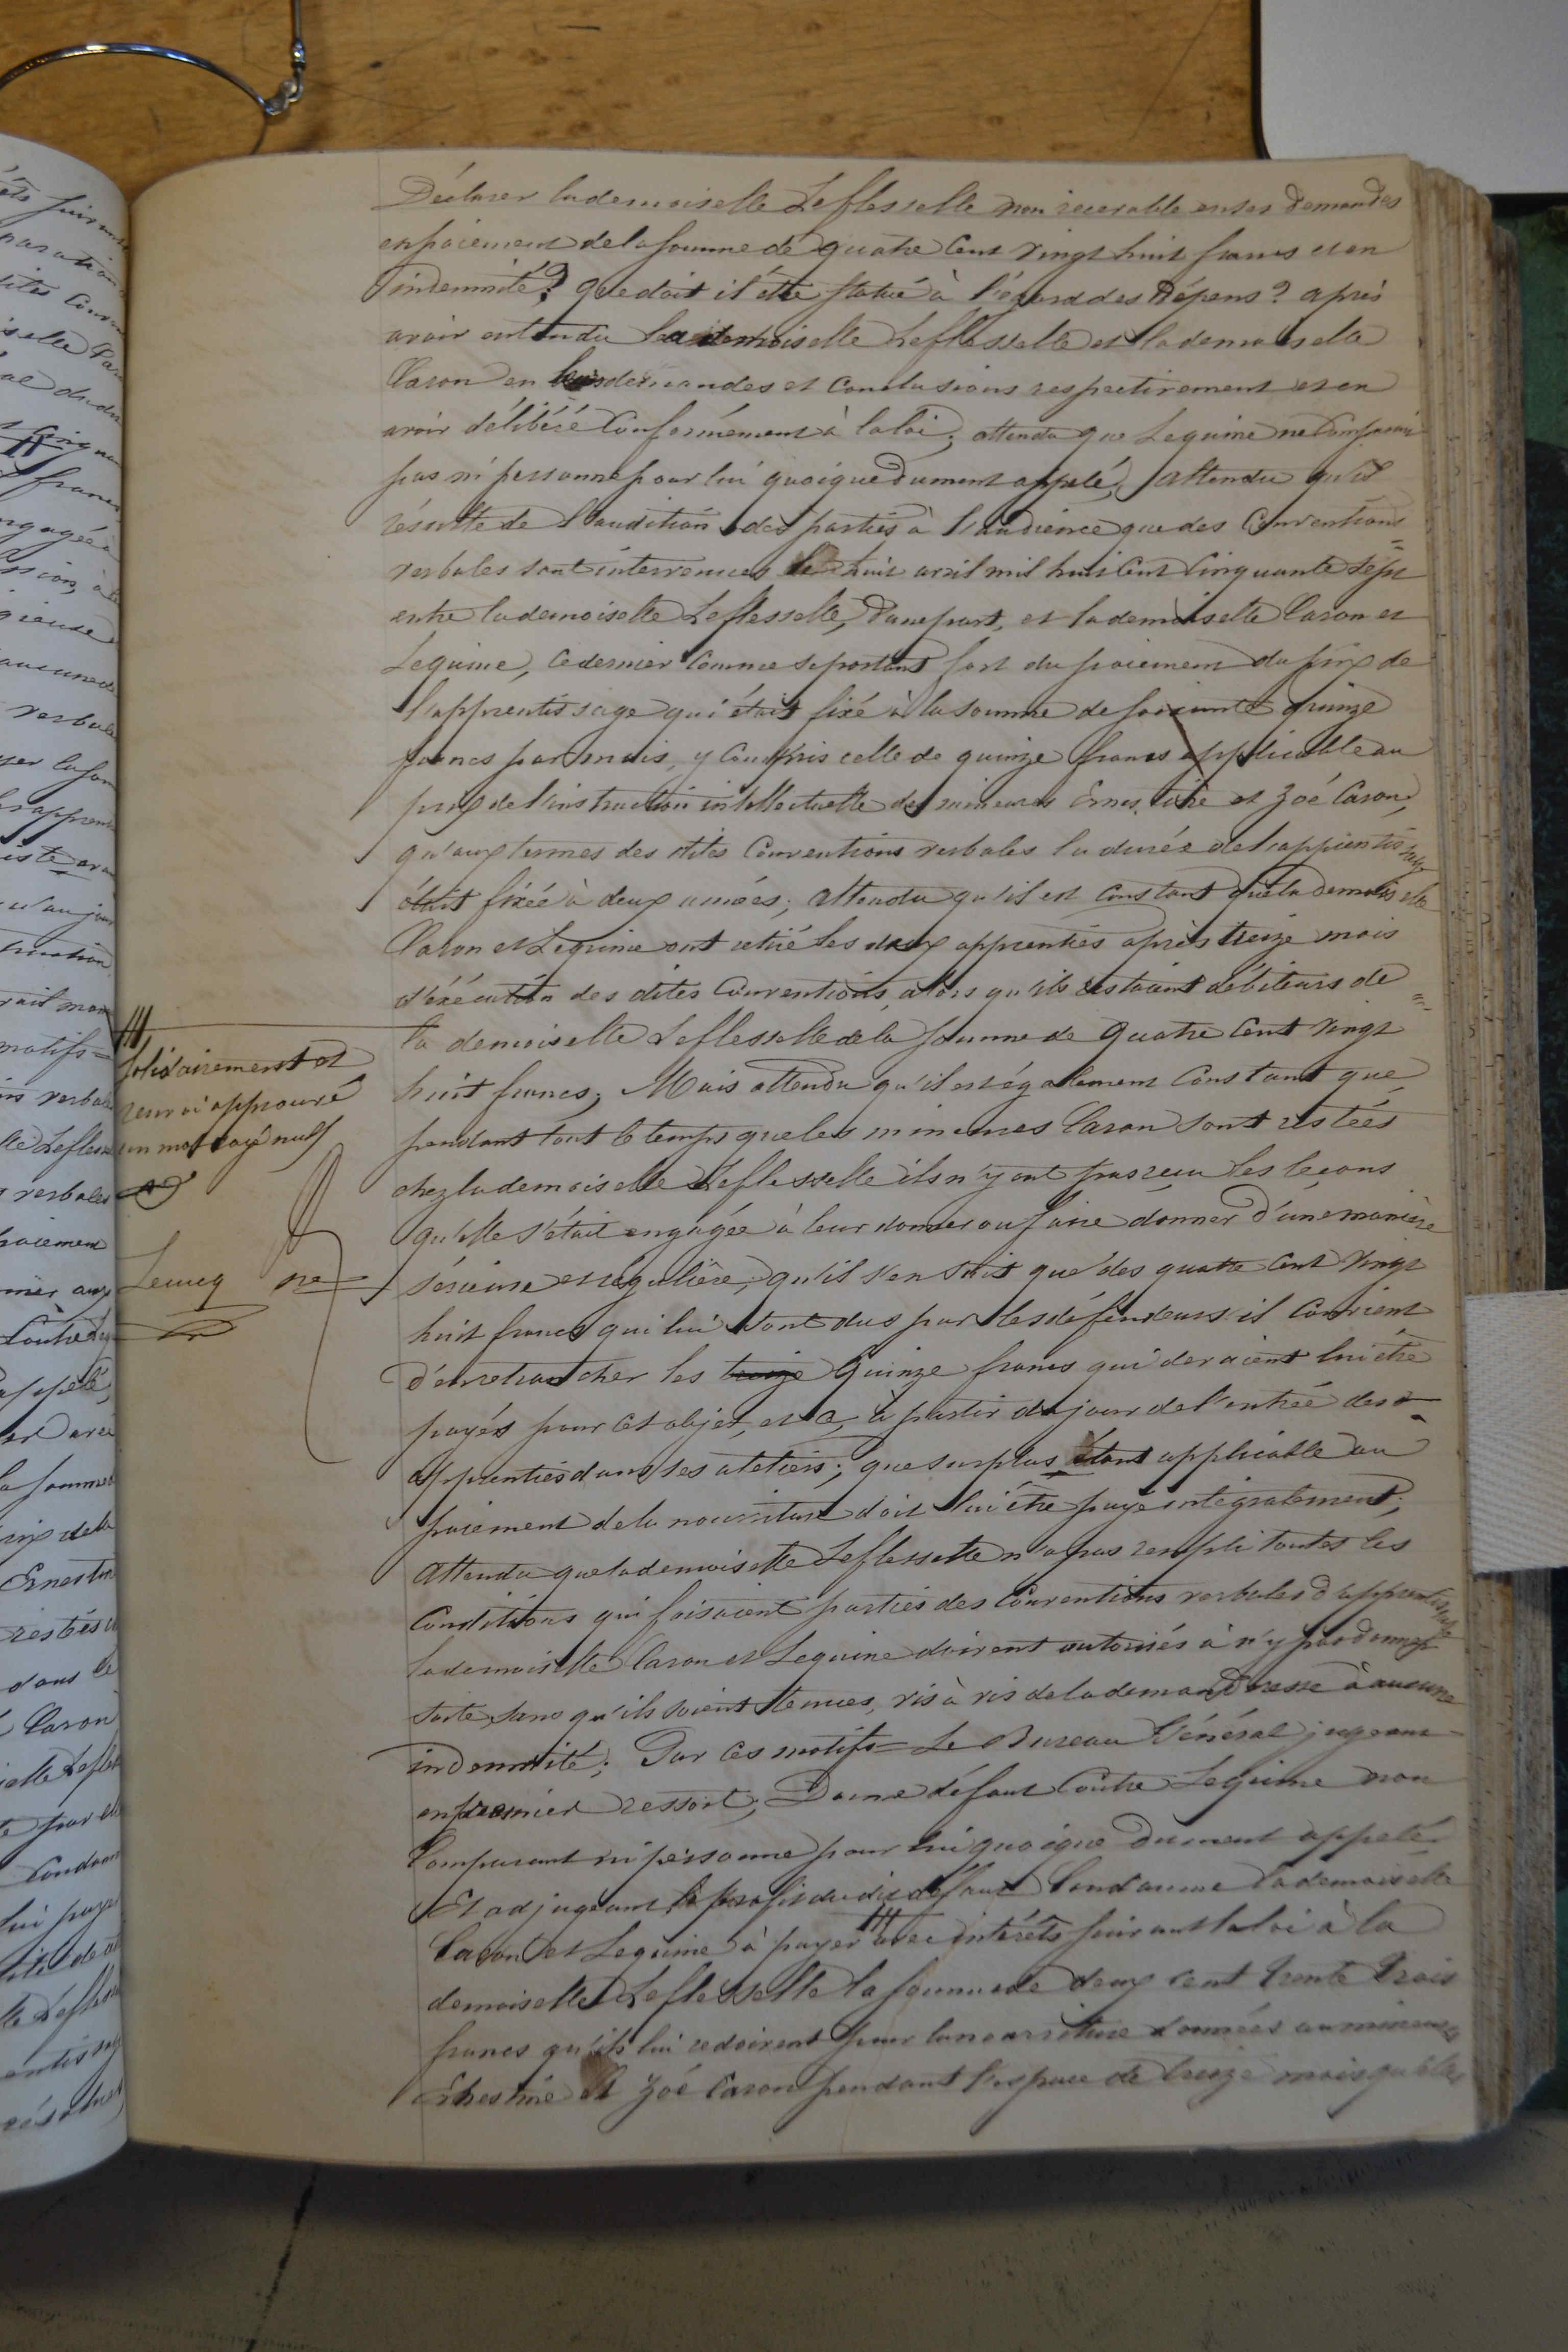 Déclarer la demoiselle Leflesselle non recevable en ses demandes
en paiement de la somme de quatre cent vingt huit francs et en
indemnité? Que doit il être statué à l'égard des dépens? après
avoir entendu la demoiselle Leflesselle et la demoiselle
Caron en leurs demandes et conclusions respectivement et en
avoir délibéré conformément à la loi; attendu que Lequime ne comparait
pas ni personne pour lui quoique dument appelé, attendu qu'il
résulte de l'audition des parties à l'audience que des conventions
verbales sont intervenues le huit avril mil huit cent cinquante sept
entre la demoiselle Leflesselle, d'une part, et la demoiselle Caron et
Lequime, ce dernier comme se portant fort du paiement du prix de
l'apprentissage qui était fixé à la somme de soixante quinze
francs par mois, y compris celle de quinze francs applicable au
prix de l'instruction intellectuelle des mineures Ernestine et Zoé Caron,
qu'aux termes des dites conventions verbales la durée de l'apprentissage
était fixée à deux années; attendu qu'il est constant que la demoiselle
Caron et Lequime ont retiré les deux apprenties après treize mois
d'éxécution des dites conventions, alors qu'ils restaient débiteurs de
la demoiselle Leflesselle de la somme de quatre cent vingt
huit francs; Mais attendu qu'il est également constant que
pendant tout le temps que les mineures Caron sont restées
chez la demoiselle Leflesselle ils n'y ont pas reçu les leçons
qu'elle s'était engagée à leur donner ou faire donner d'une manière
sérieuse et régulière; qu'il s'en suit que des quatre cent vingt
huit francs qui lui sont dus par les défendeurs il convient
d'en retrancher les treize quinze francs qui devaient lui être
payés pour cet objet, et ce, à partir du jour de l'entrée des
apprenties dans ses ateliers; que surplus étant applicable au
paiement de la nourriture doit lui être payé intégralement;
attendu que la demoiselle Leflesselle n'a pas rempli toutes les
conditions qui faisaient parties des conventions verbales d'apprentissage
la demoiselle Caron et Lequime doivent autorisés à n'y pas donner
suite, sans qu'ils soient tenues, vis à vis de la demanderesse à aucune
indemnité; Par ces motifs = Le Bureau Général jugeant
en premier ressort; Donne défaut contre Lequime non
comparant ni personne pour lui quoique dument appelé
Et adjugeant le profit du dit défaut Condamne la demoiselle
Caron et Lequime à payer /// avec intérêts suivant la loi à la
demoiselle Leflesselle la somme de deux cent trente trois
francs qu'ils lui redoivent pour la nourriture données aux mineures
Ernestine et Zoé Caron pendant l'espace de treize mois qu'elles
///
solidairement et
renvoi approuvé
un mot rayé nul
Lecucq